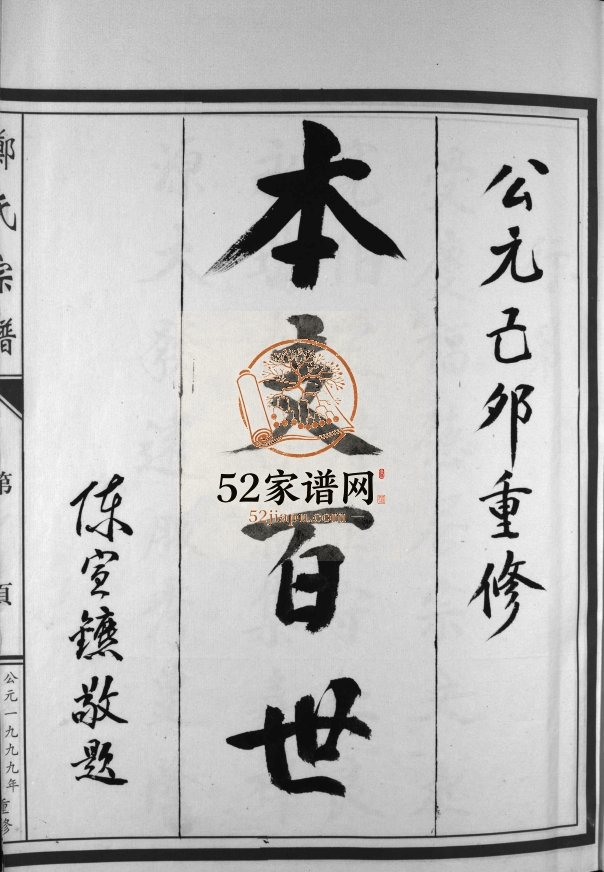 公元己卯重修
本支百世
陈宣鑣敬题
鄭氏宗譜
第 頁
公元一九九九年重修
52家谱网
52jiapu.com